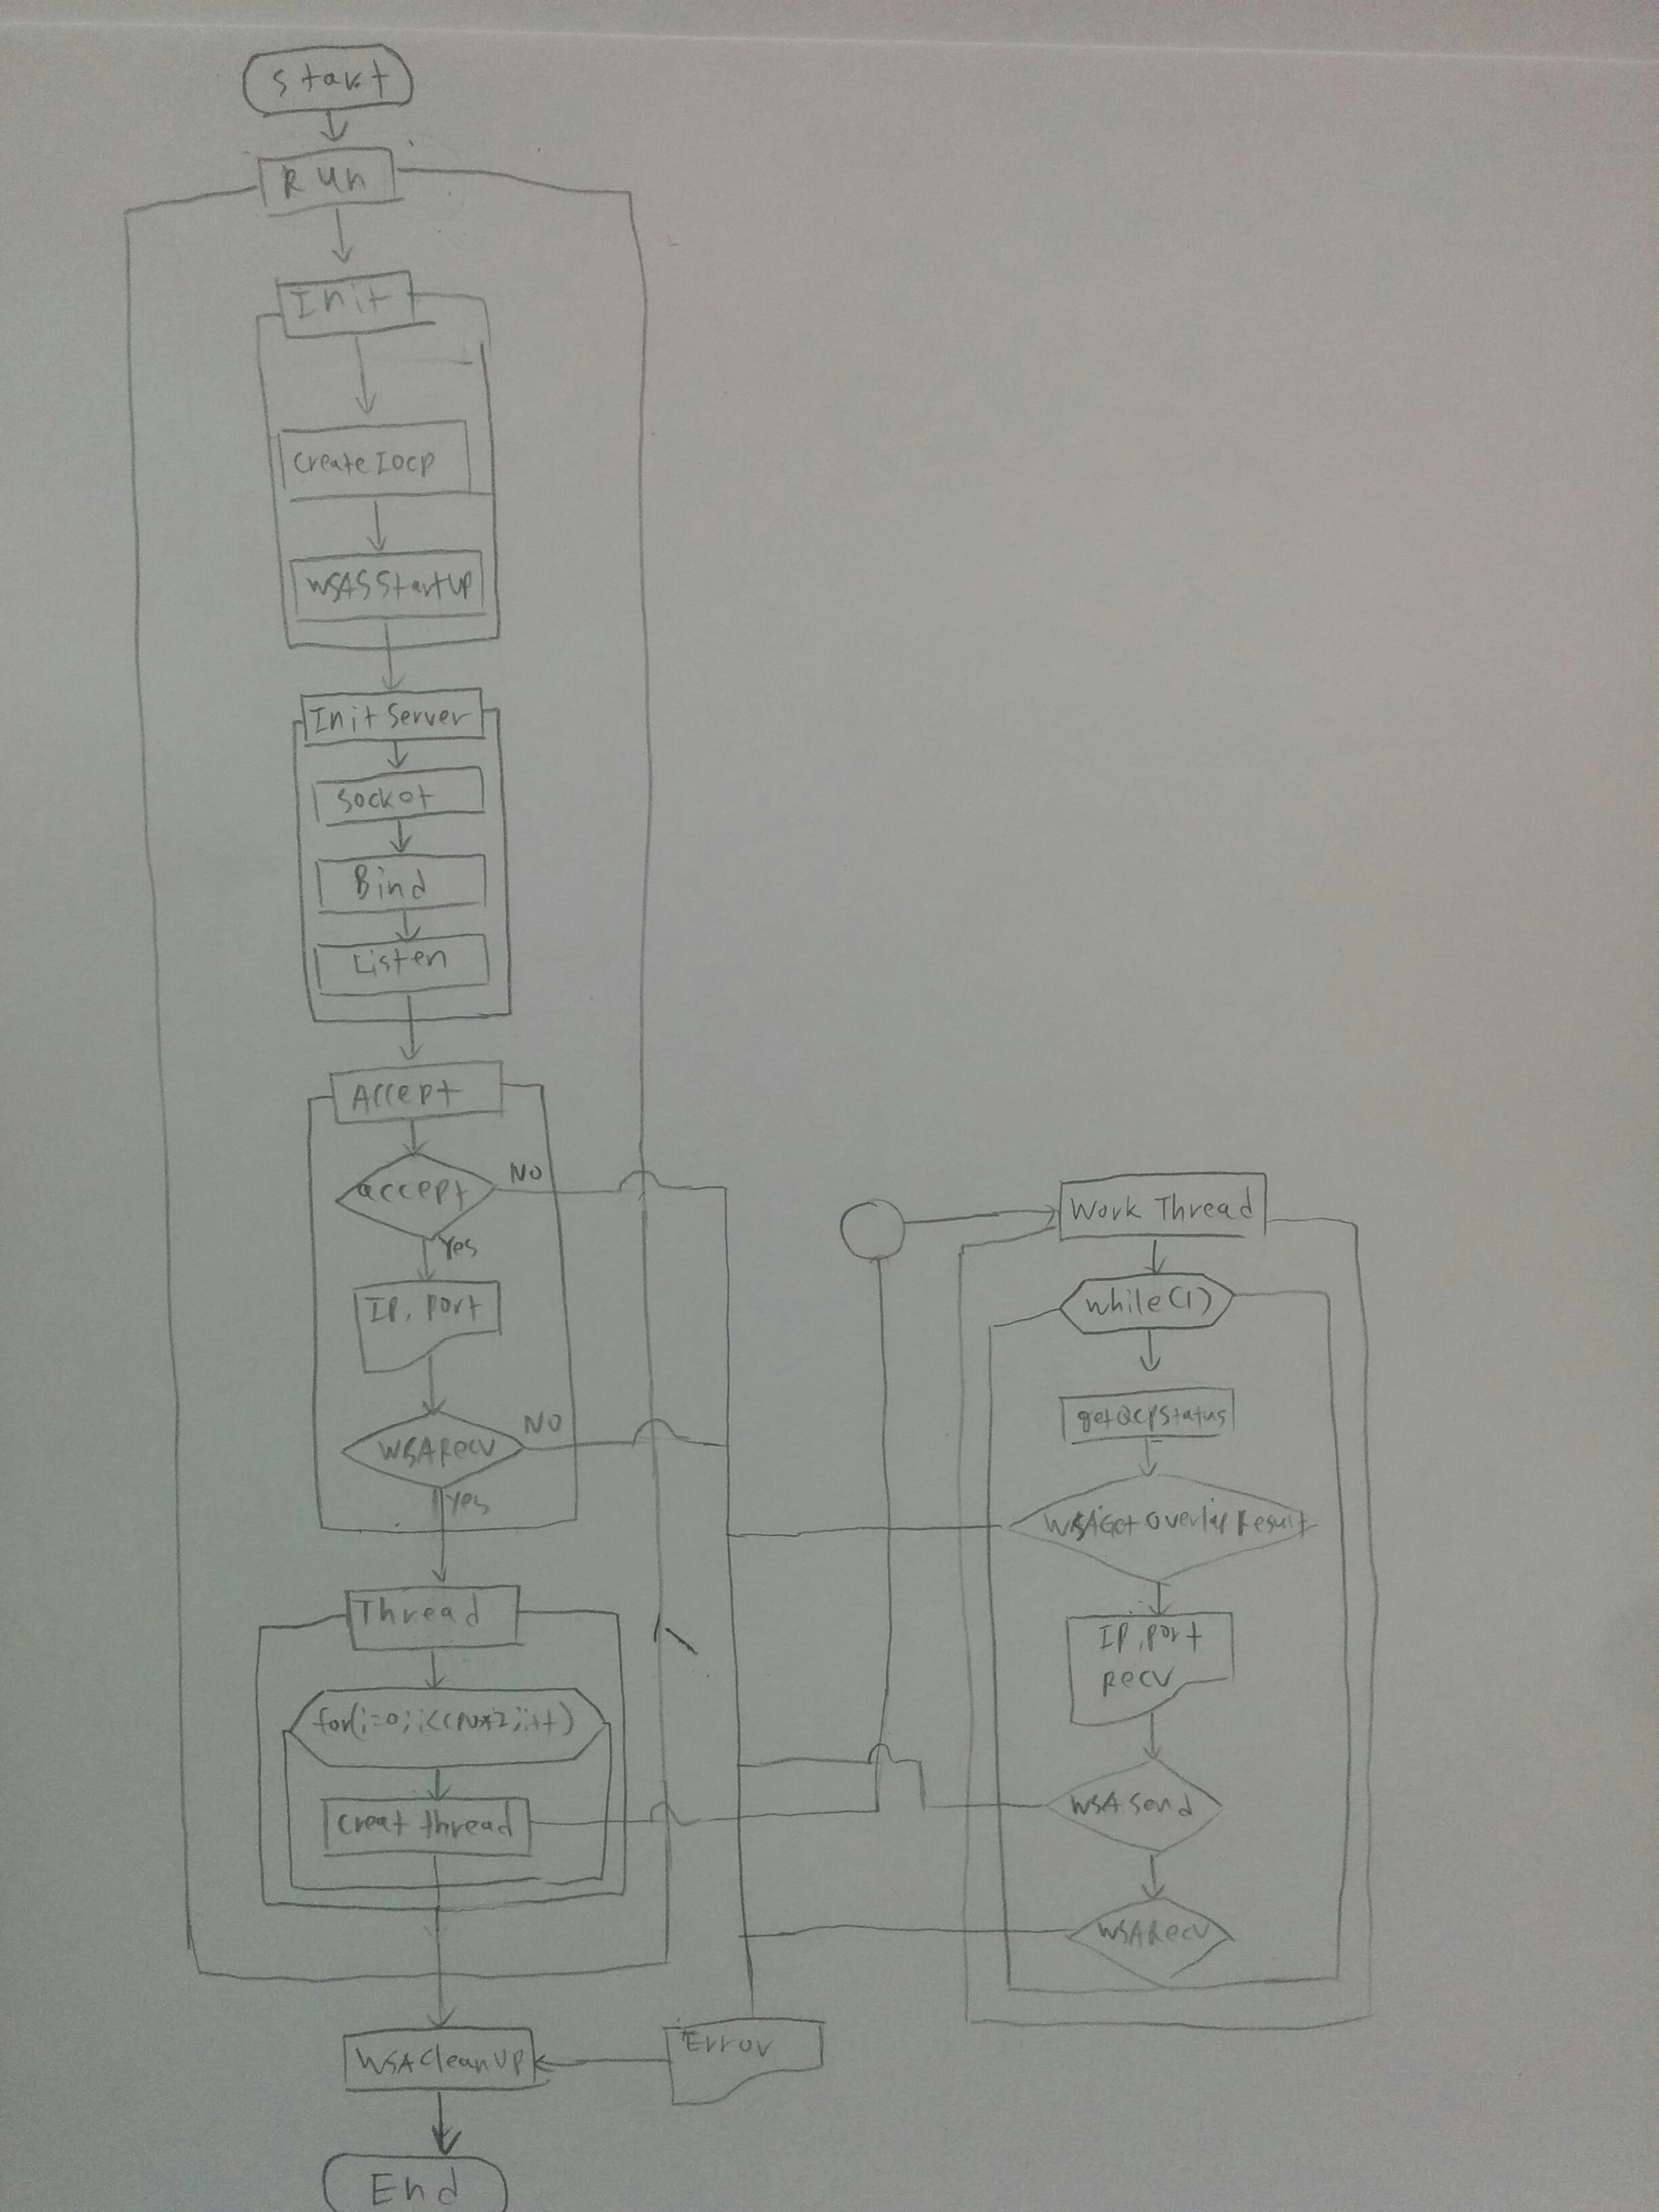 Start
Run
Init
Create Iocp
WSASStartUP
Init Server
Socket
Bind
Listen
Accept
accept
No
Yes
IP. Port
WSARecv
NO
Yes
Thread
for(i=0; i<cpu*2; i++)
Creat thread
WSACleanUP
Error
End
Work Thread
while(1)
getQCPStatus
WSAGetOverlapResult
IP. Port
Recv
WSASend
WSARecv